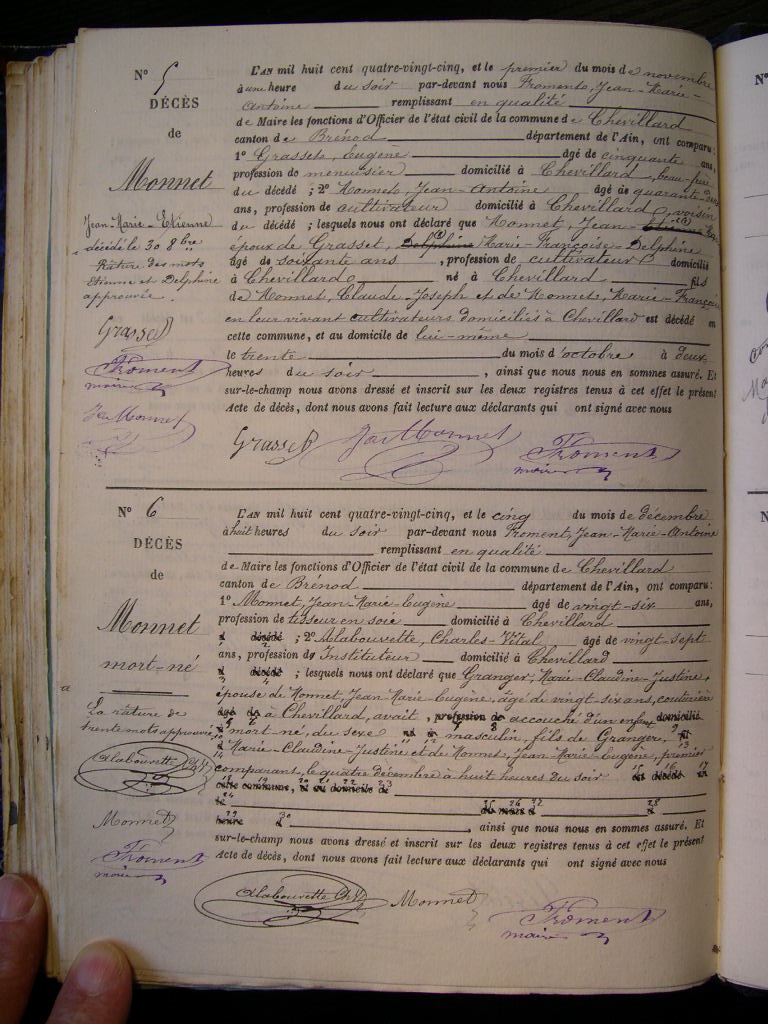 N° 5
DÉCÈS
de
Monnet
Jean-Marie-Etienne
décédé le 30 8bre
Rature des mots
Etienne et Delphine
approuvée.
Grasset
Froment
maire
Jn Monnet
L'AN mil huit cent quatre-vingt-cinq, et le premier du mois de novembre
à une heure du soir par-devant nous Froment, Jean-Marie-
Antoine remplissant en qualité
de Maire les fonctions d'Officier de l'état civil de la commune de Chevillard
canton de Brénod département de l'Ain, ont comparu:
1° Grasset, Eugène âgé de cinquante ans,
profession de menuisier domicilié à Chevillard, beau-père
du décédé ; 2° Monnet, Jean-Antoine âgé de quarante-deux
ans, profession de cultivateur domicilié à Chevillard, voisin
du décédé ; lesquels nous ont déclaré que Monnet, Jean-
époux de Grasset, Delphine Marie-Françoise-Delphine
âgé de soixante ans , profession de cultivateur domicilié
à Chevillard né à Chevillard fils
de Monnet, Claude-Joseph et de Monnet, Marie-Françoise
en leur vivant cultivateurs domiciliés à Chevillard est décédé en
cette commune, et au domicile de lui-même
le trente du mois d'octobre à deux
heures du soir , ainsi que nous nous en sommes assuré. Et
sur-le-champ nous avons dressé et inscrit sur les deux registres tenus à cet effet le présent
Acte de décès, dont nous avons fait lecture aux déclarants qui ont signé avec nous
Grasset Jn Monnet Froment
maire
N° 6
DÉCÈS
de
Monnet
mort-né
La rature de
trente mots approuvée
Alabouvette Ch V
Monnet
Froment
maire
L'AN mil huit cent quatre-vingt-cinq, et le cinq du mois de décembre
à huit heures du soir par-devant nous Froment, Jean-Marie-Antoine
remplissant en qualité
de Maire les fonctions d'Officier de l'état civil de la commune de Chevillard
canton de Brénod département de l'Ain, ont comparu:
1° Monnet, Jean-Marie-Eugène âgé de vingt-six ans,
profession de tisseur en soie domicilié à Chevillard
d décédé ; 2° Alabouvette, Charles-Vital âgé de vingt-sept
ans, profession d'Instituteur domicilié à Chevillard
d décédé ; lesquels nous ont déclaré que Granger, Marie-Claudine-Justine,
épouse de Monnet, Jean-Marie-Eugène, âgée de vingt-six ans, couturière
âgé de à Chevillard, avait , profession de accouché d'un enfant domicilié
mort-né, du sexe né à masculin, fils de Granger, fil
Marie-Claudine-Justine et de Monnet, Jean-Marie-Eugène, premier
comparans, le quatre décembre à huit heures du soir est décédé en
cette commune, et au domicile de
le du mois d
heure d , ainsi que nous nous en sommes assuré. Et
sur-le-champ nous avons dressé et inscrit sur les deux registres tenus à cet effet le présent
Acte de décès, dont nous avons fait lecture aux déclarants qui ont signé avec nous
Alabouvette Ch V Monnet Froment
maire